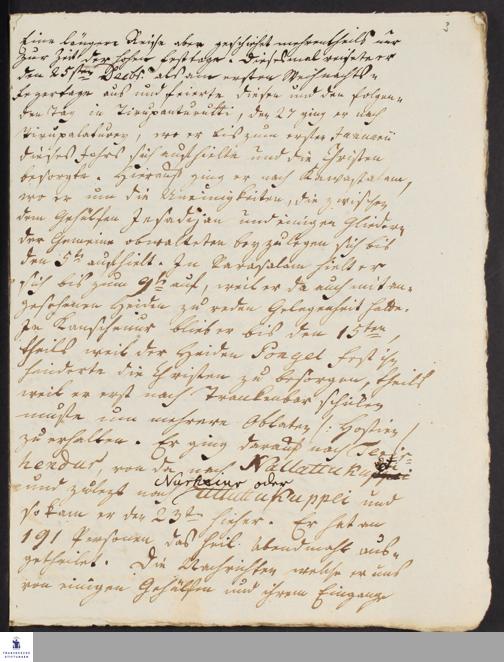 3
Eine längere Reise aber geschiehet mehrentheils nur
zur Zeit der hohen Festtage. Diesesmal reisete er
den 25sten Decbr als am ersten Weihnachts-
Feyertage aus und feierte diesen und den folgen-
den Tag in Tirupanturutti, den 27 ging er nach
Tirupalaturey, wo er bis zum ersten Januarii
dieses Jahrs sich aufhielte und die Christen
besorgte. Hierauf ging er nach Kawastalam,
wo er um die Uneinigkeiten, die zwischen
dem Gehülfen Jesadijan und einigen Gliedern
der Gemeine obwalteten beyzulegen sich bis
den 5th aufhielt. In hielt er
sich bis zum 9th auf, weil er da auch mit an-
gesehenen Heiden zu reden Gelegenheit hatte.
In blieb er bis den 15ten,
theils weil der Heiden Pongel Fest ihn
hinderte die Christen zu besorgen, theils
weil er erst nach Trankenbar schicken
mußte um mehrere Oblaten /: Hostien /
zu erhalten. Er ging darauf nach
von da nach Nallattukudi
und zuletzt nach oder Uttattukuppei und
so kam er den 23ten hieher. Er hat an
191 Personen das heil. Abendmahl aus-
getheilet. Die Nachrichten welche er uns
von einigen Gehülfen und ihrem Eingange
FRANCKESCHE
STIFTUNGEN